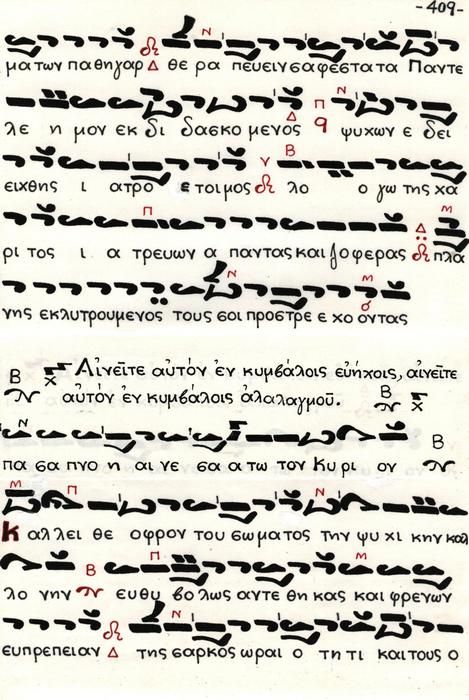 -409-
Ν
ματων παθηγαρ Δ θε ρα πευεινσαφεστατα Παντε
Δ Π Ν
λε η μον εκ δι δασκο μενος q ψυχων ε δει
γ Β
ειχθης ι ατρο ετοιμος λο ο γω της χα
Π Δ Μ
ρι τος ι α τρευων α παντας και ζοφερας πλα
Ν Μ
νης εκλυτρουμενος τους σοι προστρε ε χο οντας
Αἰνεῖτε αὐτόν ἐν κυμβάλοις εὐήχοις, αἰνεῖτε
Β χ αὐτόν ἐν κυμβάλοις ἀλαλαγμοῦ. Β χ
Ν Β
πα σα πνο η αι νε σα α τω τον Κυ ρι ον
Μ Π Ν
Καλλει θε οφρον του σωματος την ψυ χι κην καλ
Β Π Μ
λο νην ευθυ βο λως αντε θη κας και φρενων
Ν
ευπρεπειαν Δ της σαρκος ωραι ο τη τι και τους ο